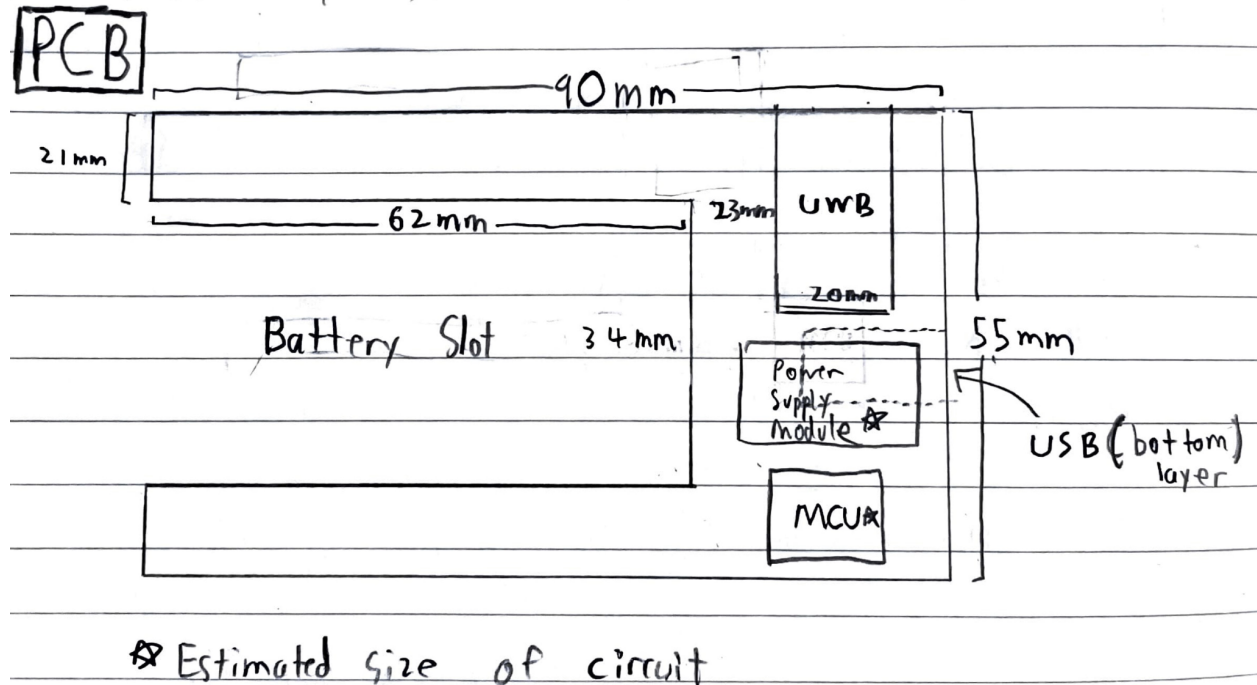 PCB
90mm
21mm
62mm
23mm
UWB
20mm
Battery Slot
34mm
55mm
Power
Supply
Module ☆
USB (bottom)
layer
MCU☆
☆ Estimated size of circuit